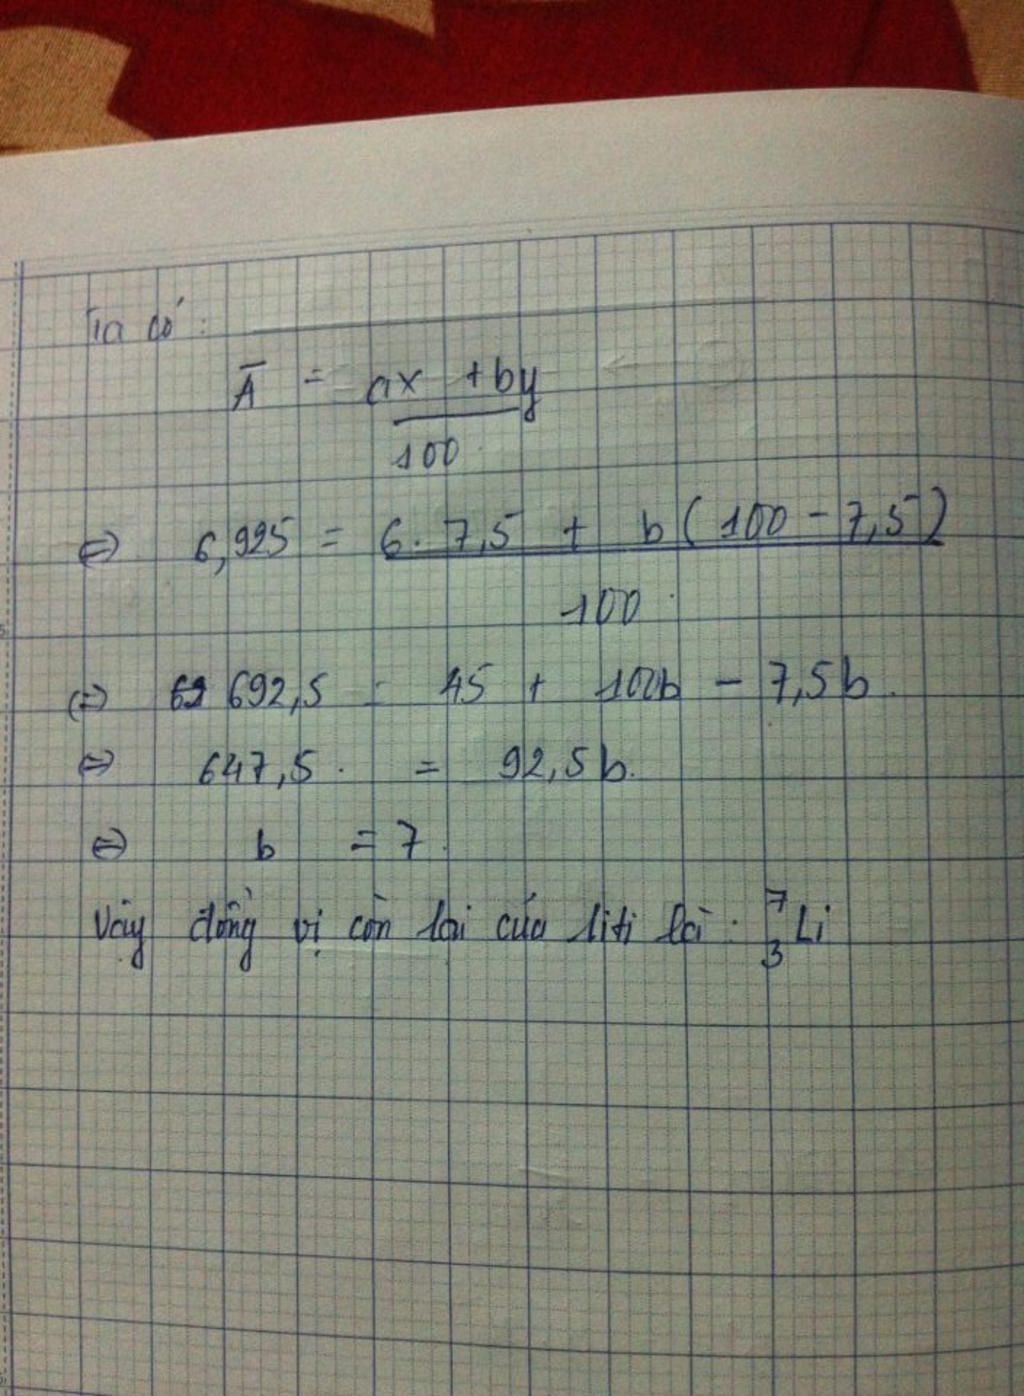 Ta có:
Ā = ax + by
100
⇔ 6,925 = 6. 7,5 + b(100 - 7,5)
100
⇔ 692,5 = 45 + 100b - 7,5b.
⇔ 647,5. = 92,5b.
⇔ b = 7.
Vậy đồng vị còn lại của liti là: ⁷₃Li